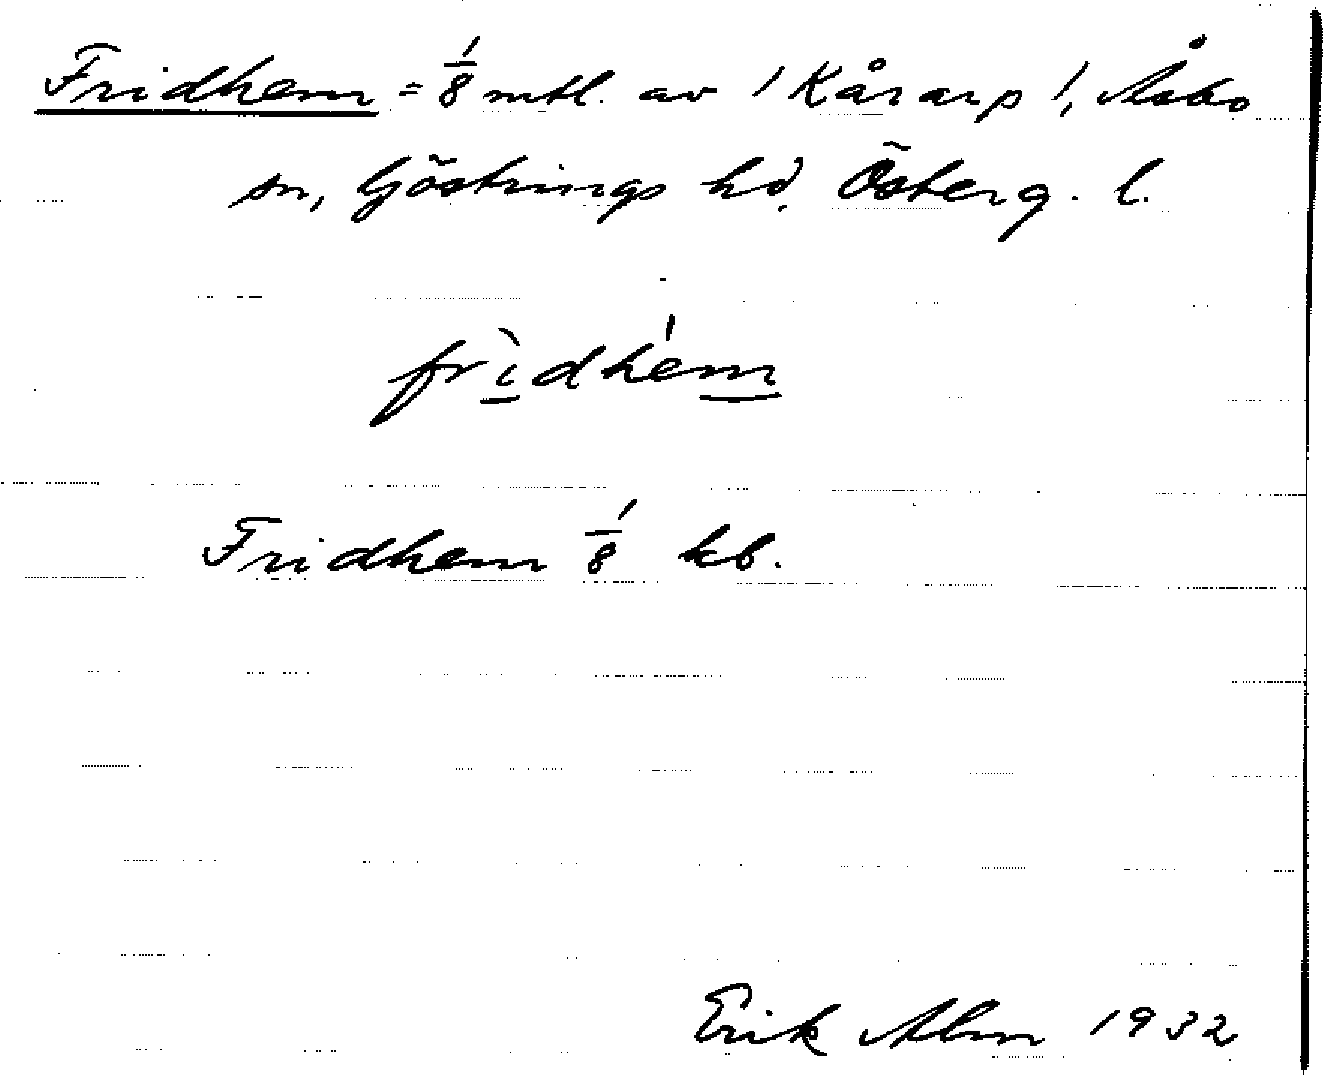 Fridhem = 1/8 mtl. av 1 Kårarp 1, Åsbo
sn, Göstrings hd, Österg. l.
frìdhém
Fridhem 1/8 kb.
Erik Alm 1932